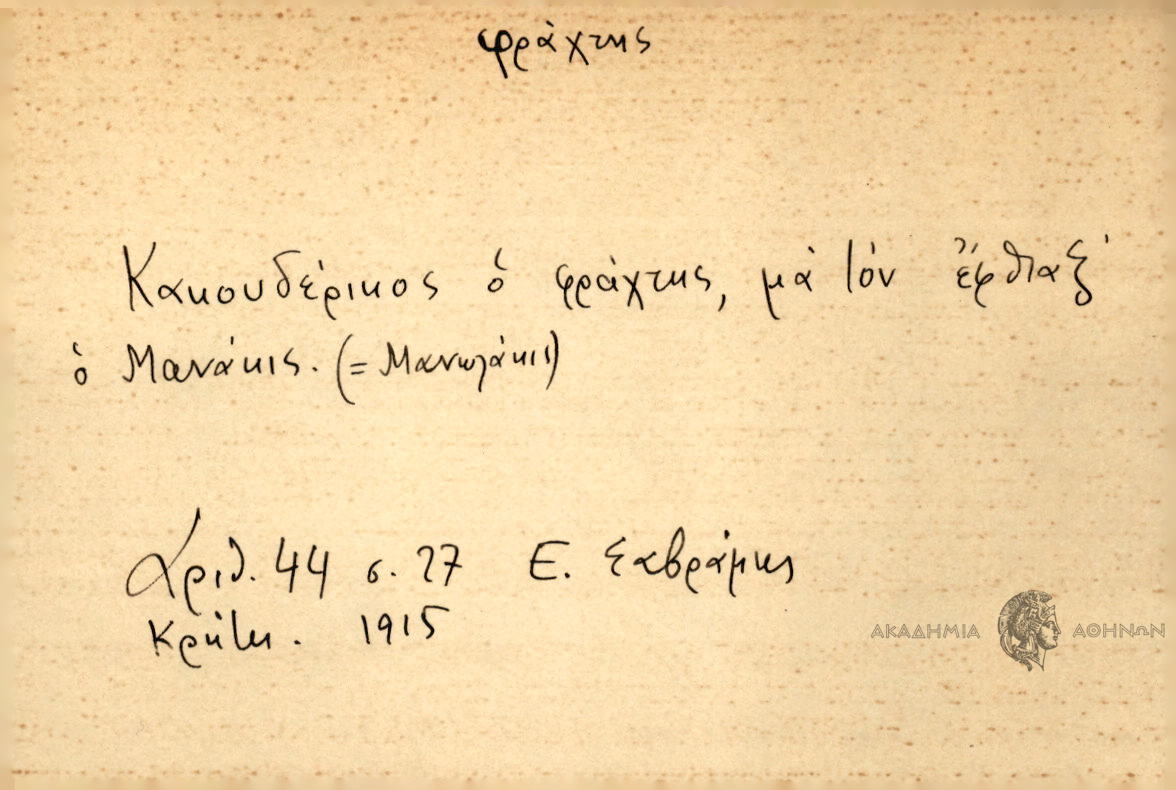 φράχτης
Κακουδέρικος ὁ φράχτης, μὰ τὸν ἔφθιαξ'
ὁ Μανάκις. (= Μανωλάκις)
Ἀριθ. 44 σ. 27 Ε. Σαβράμης
Κρήτη. 1915
ΑΚΑΔΗΜΙΑ ΑΘΗΝΩΝ